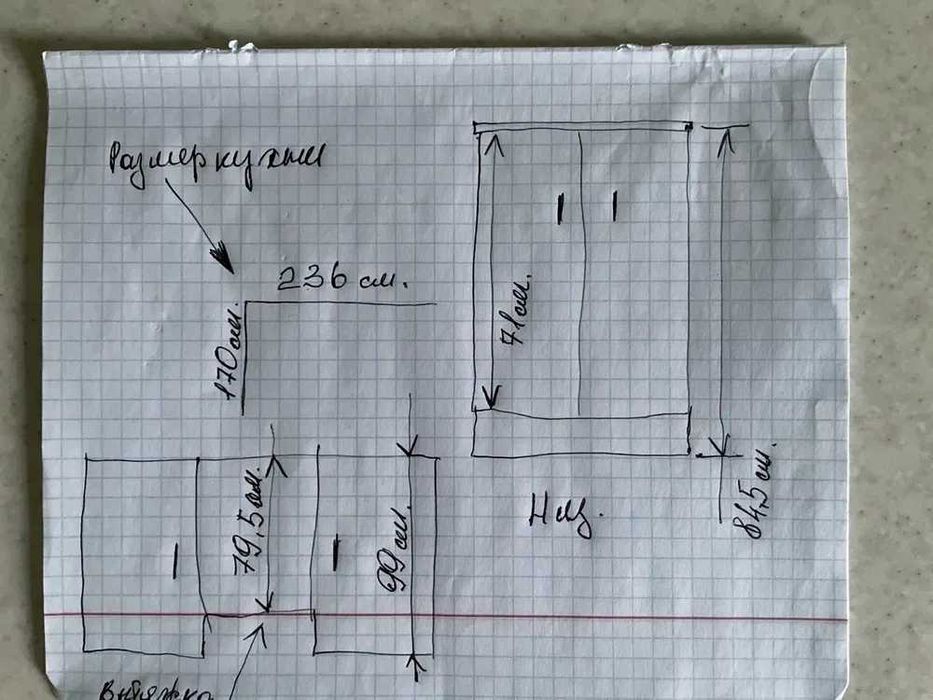 Размер кухни
236 см.
170 см
71 см.
84,5 см.
Низ.
79,5 см.
99 см.
вытяжка